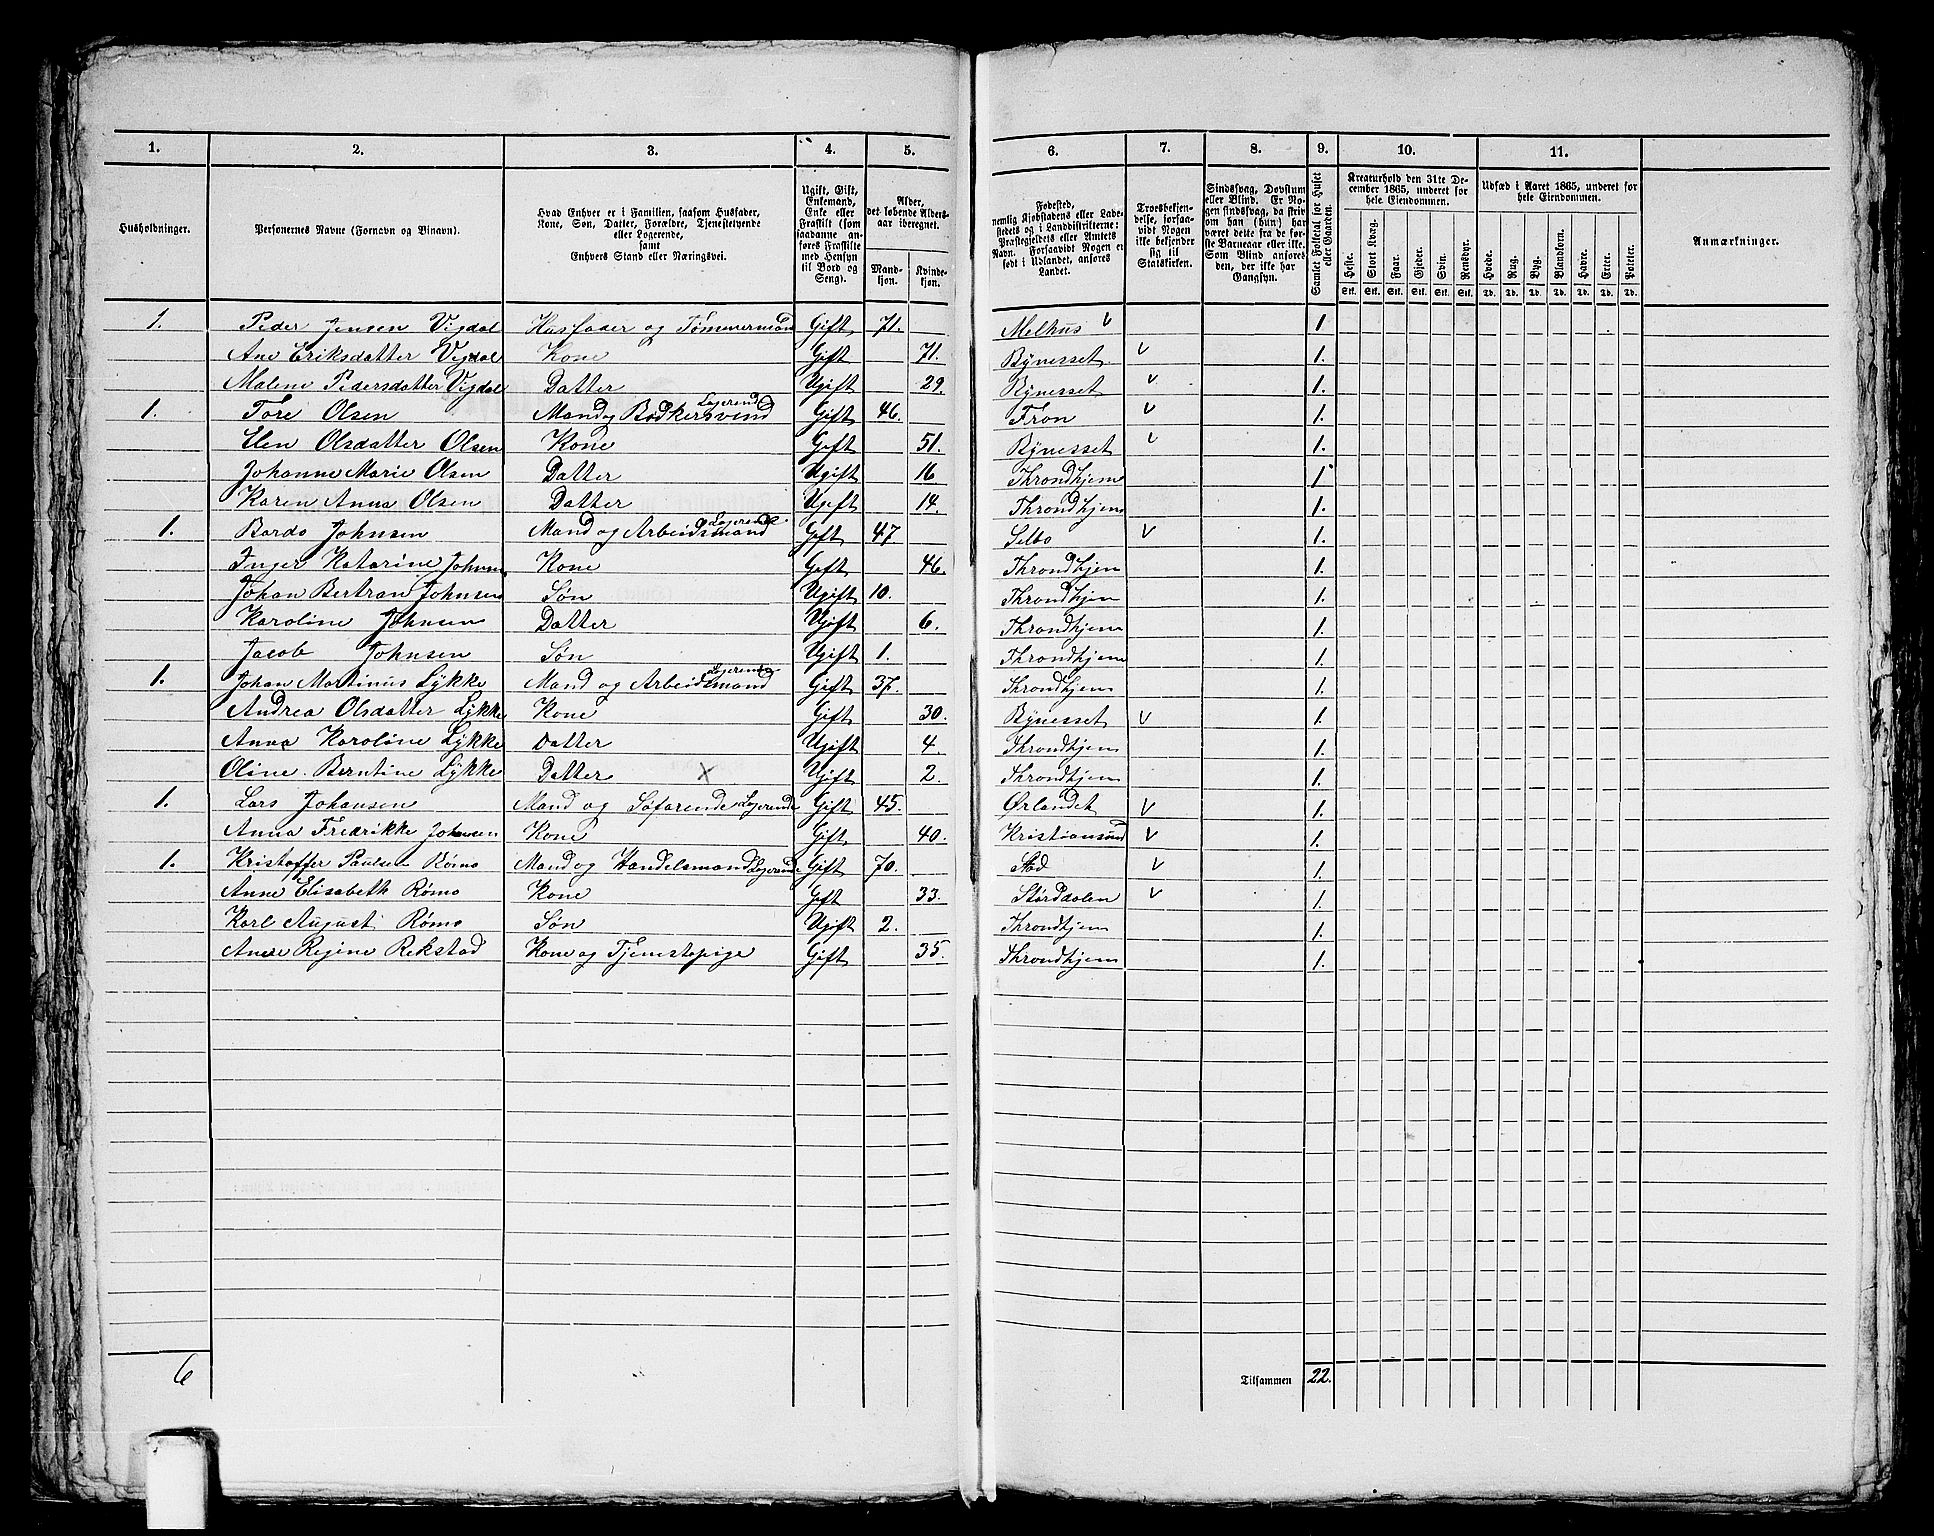 1. 2. 3. 4. 5. 6. 7. 8. 9. 10. 11.
Husholdninger.
Personernes Navne (Fornavn og Binavn).
Hvad Enhver er i Familien, saasom Husfader,
Kone, Søn, Datter, Forældre, Tjenestetyende
eller Logerende,
samt
Enhvers Stand eller Næringsvei.
Ugift, Gift,
Enkemand,
Enke eller
Fraskilt (som
saadanne an-
føres Fraskilte
med Hensyn
til Bord og
Seng).
Alder,
det løbende Alders-
aar iberegnet.
Mand-
kjøn.
Kvinde-
kjøn.
Fødested,
nemlig Kjøbstadens eller Lade-
stedets og i Landdistrikterne:
Præstegjeldets eller Amtets
Navn. Forsaavidt Nogen er
født i Udlandet, anføres
Landet.
Troesbekjen-
delse, forsaa-
vidt Nogen
ikke bekjender
sig til
Statskirken.
Sindssvag, Døvstum
eller Blind. Er No-
gen sindssvag, da skriv
om han (hun) har
været dette fra de før-
ste Barneaar eller ikke.
Som Blind ansøres
den, der ikke har
Gangsyn.
Samlet Folketal for Huset
eller Gaarden.
Kreaturhold den 31te De-
cember 1865, underet for
hele Eiendommen.
Heste. Stort Kvæg. Faar. Gjeder. Svin. Rensdyr.
Stk. Stk. Stk. Stk. Stk. Stk.
Udsæd i Aaret 1865, underet for
hele Eiendommen.
Hvede. Rug. Byg. Blandkorn. Havre. Erter. Poteter.
Td. Td. Td. Td. Td. Td. Td.
Anmærkninger.
1. Peder Jensen Vigdal Husfader og Tømmermand Gift 71. Melhus v 1
Ane Eriksdatter Vigdal Kone Gift 71. Bynesset v 1.
Malene Pedersdatter Vigdal Datter Ugift 29. Bynesset v 1.
1. Tore Olsen Mand og Bødkersvend Logerend Gift 46. Fron v 1.
Elen Olsdatter Olsen Kone Gift 51. Bynesset v 1.
Johanne Marie Olsen Datter Ugift 16 Throndhjem 1
Karen Anna Olsen Datter Ugift 14. Throndhjem 1.
1. Bardo Johnsen Mand og Arbeidsmand Logerende Gift 47 Selbo v 1.
Inger Katarine Johnsen Kone Gift 46. Throndhjem 1.
Johan Bertran Johnsen Søn Ugift 10. Throndhjem 1.
Karoline Johnsen Datter Ugift 6. Throndhjem 1.
Jacob Johnsen Søn Ugift 1. Throndhjem 1.
1. Johan Martinus Lykke Mand og Arbeidsmand Logerende Gift 37. Throndhjem 1.
Andrea Olsdatter Lykke Kone Gift 30. Bynesset v 1.
Anna Karoline Lykke Datter Ugift 4. Throndhjem 1.
Oline Berntine Lykke Datter x Ugift 2. Throndhjem 1.
1. Lars Johansen Mand og Søfarende Logerende Gift 45. Ørlandet v 1.
Anna Fredrikke Johansen Kone Gift 40. Kristiansund v 1.
1. Kristoffer Paulsen Rømo Mand og Handelsmand Logerende Gift 70. Stod v 1.
Anne Elisabeth Rømo Kone Gift 33. Størddalen v 1.
Karl August Rømo Søn Ugift 2. Throndhjem 1.
Anne Regine Rekstad Kone og Tjenestepige Gift 35. Throndhjem 1.
6
Tilsammen 22.